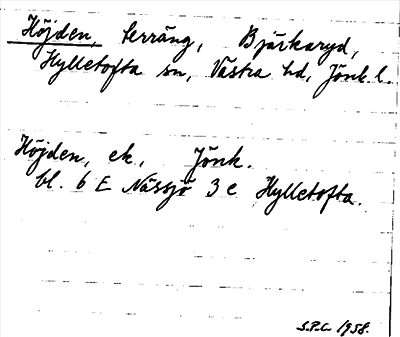 Höjden, terräng, Bjärkaryd,
Hylletofta sn, Västra hd, Jönk. l.
Höjden, ek., Jönk.
bl. 6 E Nässjö 3 e Hylletofta.
S.P.C. 1958.